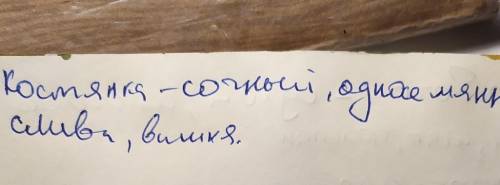 Костянка - сочный, односемянн
слива, вишня.